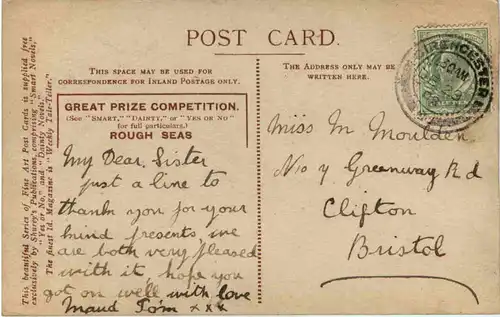 POST CARD.
THIS SPACE MAY BE USED FOR
CORRESPONDENCE FOR INLAND POSTAGE ONLY.
THE ADDRESS ONLY MAY BE
WRITTEN HERE.
GREAT PRIZE COMPETITION.
(See "SMART," "DAINTY," or "YES OR NO"
for full particulars.)
ROUGH SEAS
My Dear Sister
just a line to
thank you for your
kind presents we
are both very pleased
with it hope you
got on well with love
Maud Tom xxx
Miss M Moulden
No 10 y Greenway Rd
Clifton
Bristol
CIRENCESTER
This beautiful Series of Fine Art Post Cards is supplied free
exclusively by Shurey's Publications, comprising "Smart Novels,"
"Yes or No," and "Dainty Novels."
The finest 1d. Magazine is "Weekly Tale-Teller."